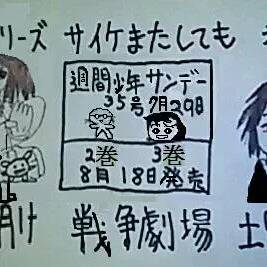 リーズ サイケまたしても
週間少年サンデー
35号7月29日
2巻 3巻
8月18日発売
戦争劇場 土